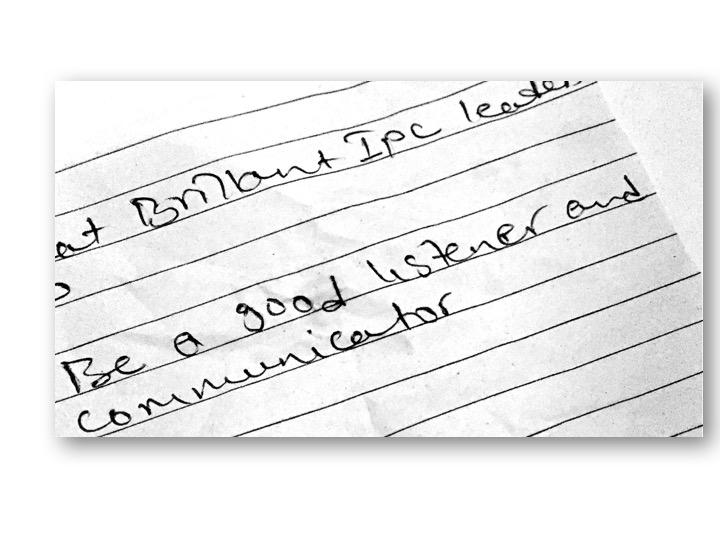 at Brilliant IPC leaders
Be a good listener and
communicator